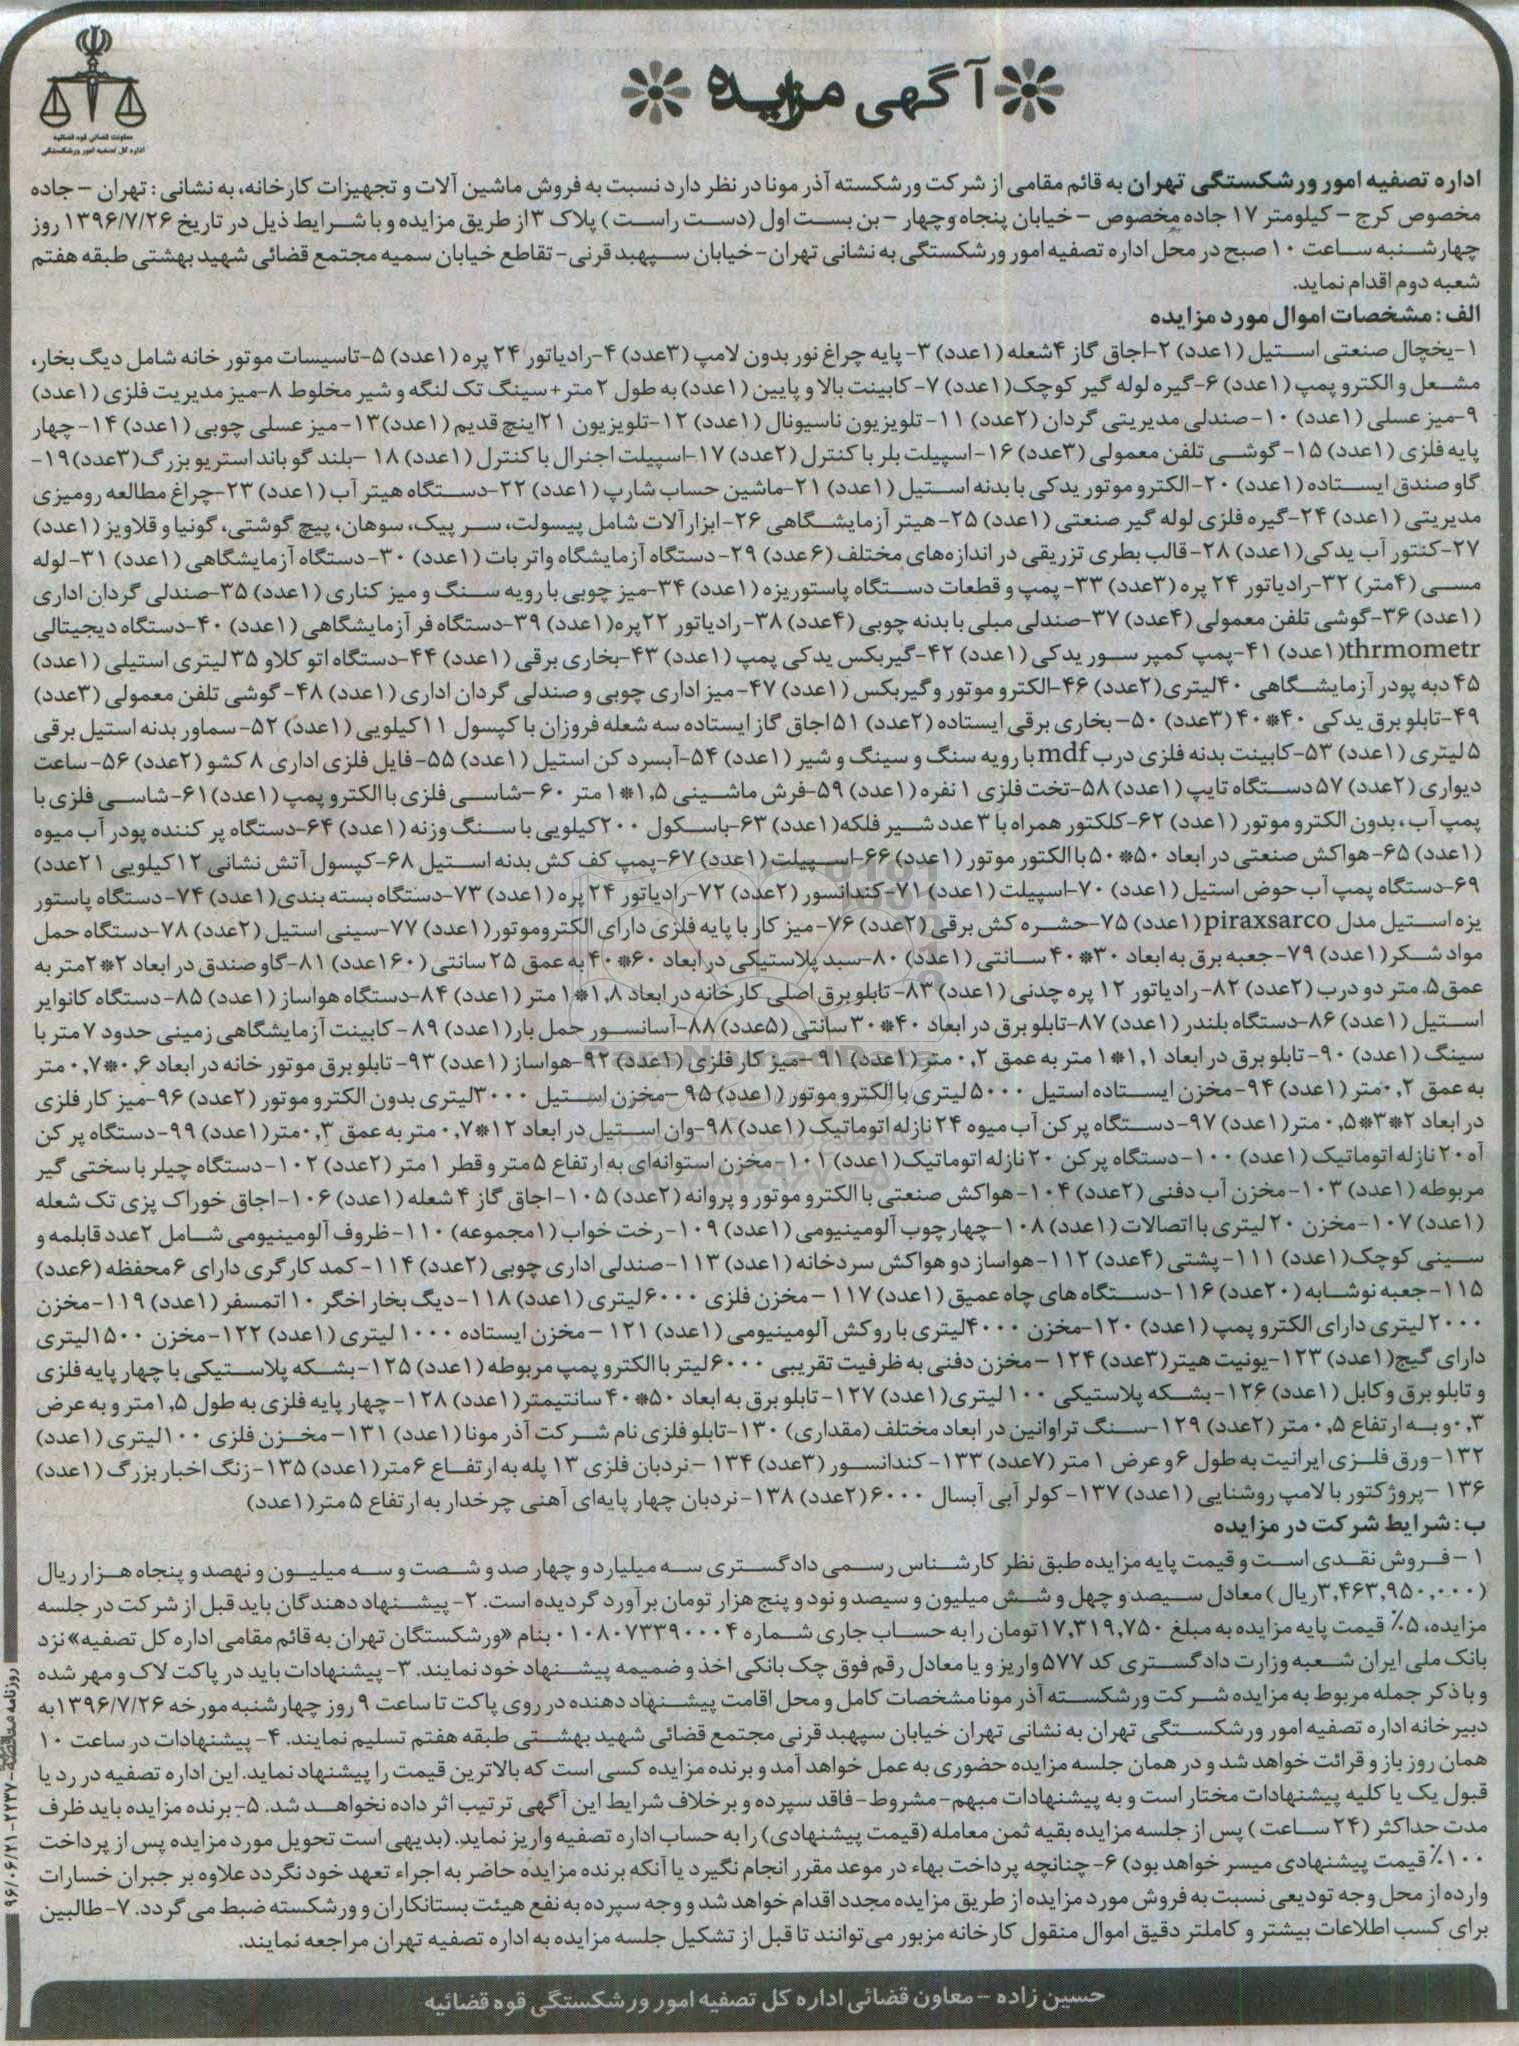 آگهی مزایده
معاونت قضائی قوه قضائیه
اداره کل تصفیه امور ورشکستگی
اداره تصفیه امور ورشکستگی تهران به قائم مقامی از شرکت ورشکسته آذر مونا در نظر دارد نسبت به فروش ماشین آلات و تجهیزات کارخانه، به نشانی : تهران – جاده
مخصوص کرج – کیلومتر ۱۷ جاده مخصوص – خیابان پنجاه وچهار – بن بست اول (دست راست) پلاک ۳ از طریق مزایده و با شرایط ذیل در تاریخ ۱۳۹۶/۷/۲۶ روز
چهارشنبه ساعت ۱۰ صبح در محل اداره تصفیه امور ورشکستگی به نشانی تهران- خیابان سپهبد قرنی- تقاطع خیابان سمیه مجتمع قضائی شهید بهشتی طبقه هفتم
شعبه دوم اقدام نماید.
الف : مشخصات اموال مورد مزایده
۱-یخچال صنعتی استیل (۱عدد) ۲-اجاق گاز ۴شعله (۱عدد) ۳- پایه چراغ نور بدون لامپ (۳عدد) ۴-رادیاتور ۲۴ پره (۱عدد) ۵-تاسیسات موتور خانه شامل دیگ بخار،
مشعل و الکترو پمپ (۱عدد) ۶-گیره لوله گیر کوچک(۱عدد) ۷- کابینت بالا و پایین (۱عدد) به طول ۲ متر+ سینگ تک لنگه و شیر مخلوط ۸-میز مدیریت فلزی (۱عدد)
۹-میز عسلی (۱عدد) ۱۰- صندلی مدیریتی گردان (۲عدد) ۱۱- تلویزیون ناسیونال (۱عدد) ۱۲-تلویزیون ۲۱اینچ قدیم (۱عدد)۱۳- میز عسلی چوبی (۱عدد) ۱۴- چهار
پایه فلزی (۱عدد) ۱۵- گوشی تلفن معمولی (۳عدد) ۱۶-اسپیلت بلر با کنترل (۲عدد) ۱۷-اسپیلت اجنرال با کنترل (۱عدد) ۱۸ -بلند گو باند استریو بزرگ(۳عدد)۱۹-
گاو صندق ایستاده (۱عدد) ۲۰-الکترو موتور یدکی با بدنه استیل (۱عدد) ۲۱-ماشین حساب شارپ (۱عدد) ۲۲-دستگاه هیتر آب (۱عدد) ۲۳-چراغ مطالعه رومیزی
مدیریتی (۱عدد) ۲۴-گیره فلزی لوله گیر صنعتی (۱عدد) ۲۵-هیتر آزمایشگاهی ۲۶-ابزارآلات شامل پیسولت، سر پیک، سوهان، پیچ گوشتی، گونیا و قلاویز (۱عدد)
۲۷-کنتور آب یدکی(۱عدد) ۲۸-قالب بطری تزریقی در اندازه‌های مختلف (۶عدد) ۲۹- دستگاه آزمایشگاه واتر بات (۱عدد) ۳۰-دستگاه آزمایشگاهی (۱عدد) ۳۱-لوله
مسی (۴متر) ۳۲-رادیاتور ۲۴ پره (۳عدد) ۳۳- پمپ و قطعات دستگاه پاستوریزه (۱عدد) ۳۴-میز چوبی با رویه سنگ و میز کناری (۱عدد) ۳۵-صندلی گردان اداری
(۱عدد) ۳۶-گوشی تلفن معمولی (۴عدد) ۳۷-صندلی مبلی با بدنه چوبی (۴عدد) ۳۸-رادیاتور ۲۲پره(۱عدد) ۳۹-دستگاه فر آزمایشگاهی (۱عدد) ۴۰-دستگاه دیجیتالی
thrmometr(۱عدد) ۴۱-پمپ کمپرسور یدکی (۱عدد) ۴۲-گیربکس یدکی پمپ (۱عدد) ۴۳-بخاری برقی (۱عدد) ۴۴-دستگاه اتو کلاو ۳۵ لیتری استیلی (۱عدد)
۴۵ دبه پودر آزمایشگاهی ۴۰لیتری(۲عدد) ۴۶-الکترو موتور و گیربکس (۱عدد) ۴۷-میز اداری چوبی و صندلی گردان اداری (۱عدد) ۴۸-گوشی تلفن معمولی (۳عدد)
۴۹-تابلو برق یدکی ۴۰*۴۰ (۳عدد) ۵۰-بخاری برقی ایستاده (۲عدد) ۵۱ اجاق گاز ایستاده سه شعله فروزان با کپسول ۱۱کیلویی (۱عدد) ۵۲-سماور بدنه استیل برقی
۵ لیتری (۱عدد) ۵۳-کابینت بدنه فلزی درب mdf با رویه سنگ و سینگ و شیر (۱عدد) ۵۴-آبسرد کن استیل (۱عدد) ۵۵-فایل فلزی اداری ۸ کشو (۲عدد) ۵۶-ساعت
دیواری (۲عدد) ۵۷دستگاه تایپ (۱عدد) ۵۸-تخت فلزی ۱ نفره (۱عدد) ۵۹-فرش ماشینی ۱,۵*۱ متر ۶۰-شاسی فلزی با الکترو پمپ (۱عدد)۶۱-شاسی فلزی با
پمپ آب، بدون الکترو موتور (۱عدد) ۶۲-کلکتور همراه با ۳عدد شیر فلکه(۱عدد) ۶۳-باسکول ۲۰۰کیلویی با سنگ وزنه (۱عدد) ۶۴-دستگاه پر کننده پودر آب میوه
(۱عدد) ۶۵-هواکش صنعتی در ابعاد ۵۰*۵۰ با الکتور موتور (۱عدد) ۶۶-اسپیلت (۱عدد) ۶۷-پمپ کف کش بدنه استیل ۶۸-کپسول آتش نشانی ۱۲کیلویی ۲۱عدد)
۶۹-دستگاه پمپ آب حوض استیل (۱عدد) ۷۰-اسپیلت (۱عدد) ۷۱-کندانسور (۲عدد) ۷۲-رادیاتور ۲۴ پره (۱عدد) ۷۳-دستگاه بسته بندی(۱عدد) ۷۴-دستگاه پاستور
یزه استیل مدل piraxsarco(۱عدد) ۷۵-حشره کش برقی (۲عدد) ۷۶-میز کار با پایه فلزی دارای الکتروموتور(۱عدد) ۷۷-سینی استیل (۲عدد) ۷۸-دستگاه حمل
مواد شکر(۱عدد) ۷۹-جعبه برق به ابعاد ۳۰*۴۰ سانتی (۱عدد) ۸۰-سبد پلاستیکی در ابعاد ۶۰*۴۰ به عمق ۲۵ سانتی (۱۶۰عدد) ۸۱-گاو صندق در ابعاد ۲*۲متر به
عمق۵. متر دو درب (۲عدد) ۸۲-رادیاتور ۱۲ پره چدنی (۱عدد) ۸۳-تابلو برق اصلی کارخانه در ابعاد ۱,۸*۱ متر (۱عدد) ۸۴-دستگاه هواساز (۱عدد) ۸۵-دستگاه کانوایر
استیل (۱عدد) ۸۶-دستگاه بلندر (۱عدد) ۸۷-تابلو برق در ابعاد ۴۰*۳۰ سانتی (۵عدد) ۸۸-آسانسور حمل بار(۱عدد) ۸۹-کابینت آزمایشگاهی زمینی حدود ۷ متر با
سینگ (۱عدد) ۹۰-تابلو برق در ابعاد ۱,۱*۱ متر به عمق ۰,۲ متر (۱عدد) ۹۱-میز کار فلزی (۱عدد) ۹۲-هواساز (۱عدد) ۹۳-تابلو برق موتور خانه در ابعاد ۰,۶*۰,۷ متر
به عمق ۰,۲متر (۱عدد) ۹۴-مخزن ایستاده استیل ۵۰۰۰ لیتری با الکترو موتور (۱عدد) ۹۵-مخزن استیل ۳۰۰۰لیتری بدون الکترو موتور (۲عدد) ۹۶-میز کار فلزی
در ابعاد ۲*۳*۰,۵ متر (۱عدد) ۹۷-دستگاه پرکن آب میوه ۲۴ نازله اتوماتیک (۱عدد) ۹۸-وان استیل در ابعاد ۱۲*۰,۷ متر به عمق ۰,۳متر(۱عدد) ۹۹-دستگاه پر کن
آه ۲۰ نازله اتوماتیک (۱عدد) ۱۰۰-دستگاه پرکن ۲۰ نازله اتوماتیک(۱عدد) ۱۰۱-مخزن استوانه‌ای به ارتفاع ۵ متر و قطر ۱ متر (۲عدد) ۱۰۲-دستگاه چیلر با سختی گیر
مربوطه (۱عدد) ۱۰۳-مخزن آب دفنی (۲عدد) ۱۰۴-هواکش صنعتی با الکترو موتور و پروانه (۲عدد) ۱۰۵-اجاق گاز ۴ شعله (۱عدد) ۱۰۶-اجاق خوراک پزی تک شعله
(۱عدد) ۱۰۷-مخزن ۲۰ لیتری با اتصالات (۱عدد) ۱۰۸-چهارچوب آلومینیومی (۱عدد) ۱۰۹-رخت خواب (۱مجموعه) ۱۱۰-ظروف آلومینیومی شامل ۲عدد قابلمه و
سینی کوچک(۱عدد) ۱۱۱-پشتی (۴عدد) ۱۱۲-هواساز دو هواکش سردخانه (۱عدد) ۱۱۳-صندلی اداری چوبی (۲عدد) ۱۱۴-کمد کارگری دارای ۶محفظه (۶عدد)
۱۱۵-جعبه نوشابه (۲۰عدد) ۱۱۶-دستگاه های چاه عمیق (۱عدد) ۱۱۷-مخزن فلزی ۶۰۰۰لیتری (۱عدد) ۱۱۸-دیگ بخار اخگر ۱۰ اتمسفر (۱عدد) ۱۱۹-مخزن
۲۰۰۰ لیتری دارای الکترو پمپ (۱عدد) ۱۲۰-مخزن ۴۰۰۰لیتری با روکش آلومینیومی (۱عدد) ۱۲۱-مخزن ایستاده ۱۰۰۰ لیتری (۱عدد) ۱۲۲-مخزن ۱۵۰۰لیتری
دارای گیج(۱عدد) ۱۲۳-یونیت هیتر(۳عدد) ۱۲۴-مخزن دفنی به ظرفیت تقریبی ۶۰۰۰لیتر با الکترو پمپ مربوطه (۱عدد) ۱۲۵-بشکه پلاستیکی با چهار پایه فلزی
و تابلو برق و کابل (۱عدد) ۱۲۶-بشکه پلاستیکی ۱۰۰ لیتری(۱عدد) ۱۲۷-تابلو برق به ابعاد ۵۰*۴۰ سانتیمتر (۱عدد) ۱۲۸-چهار پایه فلزی به طول ۱,۵متر و به عرض
۰,۳و به ارتفاع ۰,۵ متر (۲عدد) ۱۲۹-سنگ تراوانین در ابعاد مختلف (مقداری) ۱۳۰-تابلو فلزی نام شرکت آذر مونا (۱عدد) ۱۳۱-مخزن فلزی ۱۰۰لیتری (۱عدد)
۱۳۲-ورق فلزی ایرانیت به طول ۶ و عرض ۱ متر (۷عدد) ۱۳۳-کندانسور (۳عدد) ۱۳۴-نردبان فلزی ۱۳ پله به ارتفاع ۶متر(۱عدد) ۱۳۵-زنگ اخبار بزرگ (۱عدد)
۱۳۶-پروژکتور با لامپ روشنایی (۱عدد) ۱۳۷-کولر آبی آبسال ۶۰۰۰(۲عدد) ۱۳۸-نردبان چهار پایه‌ای آهنی چرخدار به ارتفاع ۵ متر(۱عدد)
ب : شرایط شرکت در مزایده
۱- فروش نقدی است و قیمت پایه مزایده طبق نظر کارشناس رسمی دادگستری سه میلیارد و چهار صد و شصت و سه میلیون و نهصد و پنجاه هزار ریال
(۳,۴۶۳,۹۵۰,۰۰۰ریال) معادل سیصد و چهل و شش میلیون و سیصد و نود و پنج هزار تومان برآورد گردیده است. ۲- پیشنهاد دهندگان باید قبل از شرکت در جلسه
مزایده، ۵٪ قیمت پایه مزایده به مبلغ ۱۷,۳۱۹,۷۵۰تومان را به حساب جاری شماره ۰۱۰۸۰۷۳۳۹۰۰۰۴ بنام «ورشکستگان تهران به قائم مقامی اداره کل تصفیه» نزد
بانک ملی ایران شعبه وزارت دادگستری کد ۵۷۷ واریز و یا معادل رقم فوق چک بانکی اخذ و ضمیمه پیشنهاد خود نمایند. ۳- پیشنهادات باید در پاکت لاک و مهر شده
و با ذکر جمله مربوط به مزایده شرکت ورشکسته آذر مونا مشخصات کامل و محل اقامت پیشنهاد دهنده در روی پاکت تا ساعت ۹ روز چهارشنبه مورخه ۱۳۹۶/۷/۲۶به
دبیرخانه اداره تصفیه امور ورشکستگی تهران به نشانی تهران خیابان سپهبد قرنی مجتمع قضائی شهید بهشتی طبقه هفتم تسلیم نمایند. ۴- پیشنهادات در ساعت ۱۰
همان روز باز و قرائت خواهد شد و در همان جلسه مزایده حضوری به عمل خواهد آمد و برنده مزایده کسی است که بالاترین قیمت را پیشنهاد نماید. این اداره تصفیه در رد یا
قبول یک یا کلیه پیشنهادات مختار است و به پیشنهادات مبهم- مشروط- فاقد سپرده و برخلاف شرایط این آگهی ترتیب اثر داده نخواهد شد. ۵- برنده مزایده باید ظرف
مدت حداکثر (۲۴ ساعت) پس از جلسه مزایده بقیه ثمن معامله (قیمت پیشنهادی) را به حساب اداره تصفیه واریز نماید. (بدیهی است تحویل مورد مزایده پس از پرداخت
۱۰۰٪ قیمت پیشنهادی میسر خواهد بود) ۶- چنانچه پرداخت بهاء در موعد مقرر انجام نگیرد یا آنکه برنده مزایده حاضر به اجراء تعهد خود نگردد علاوه بر جبران خسارات
وارده از محل وجه تودیعی نسبت به فروش مورد مزایده از طریق مزایده مجدد اقدام خواهد شد و وجه سپرده به نفع هیئت بستانکاران و ورشکسته ضبط می گردد. ۷- طالبین
برای کسب اطلاعات بیشتر و کاملتر دقیق اموال منقول کارخانه مزبور می‌توانند تا قبل از تشکیل جلسه مزایده به اداره تصفیه تهران مراجعه نمایند.
حسین زاده – معاون قضائی اداره کل تصفیه امور ورشکستگی قوه قضائیه
روزنامه مناقصه-۲۲۳۷-۹۶/۰۶/۲۱